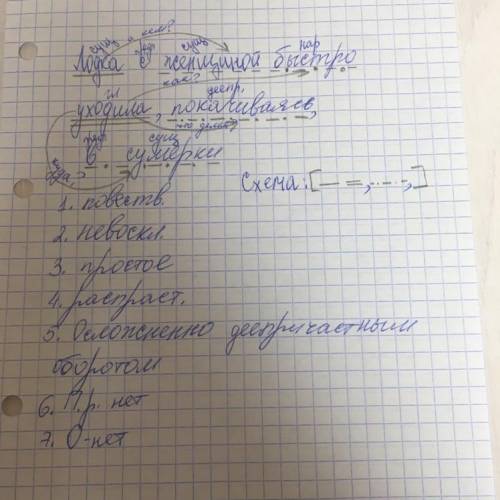 сущ с кем? пр сущ нар
Лодка с женщиной быстро
гл как? деепр.
уходила, покачиваясь,
пр сущ что делая?
в сумерки
куда?
Схема: [— =, -.-.-,]
1. повеств.
2. невоскл.
3. простое
4. распраст.
5. Осложненно деепричастным
оборотом
6. П.р. нет
7. О-нет